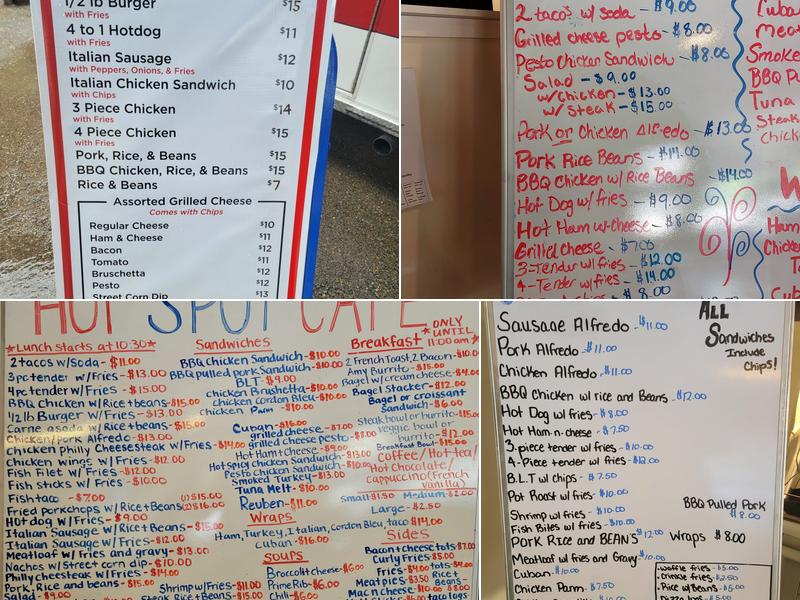 1/2 lb Burger $15
with Fries
4 to 1 Hotdog $11
Italian Sausage $12
with Peppers, Onions, & Fries
Italian Chicken Sandwich $10
with Chips
3 Piece Chicken $14
with Fries
4 Piece Chicken $15
with Fries
Pork, Rice, & Beans $15
BBQ Chicken, Rice, & Beans $15
Rice & Beans $7
Assorted Grilled Cheese
Comes with Chips
Regular Cheese $10
Ham & Cheese $11
Bacon $12
Tomato $11
Bruschetta $12
Pesto $12
Street Corn Dip $13
2 tacos w/ soda - $9.00
Grilled cheese pesto - $8.00
Pesto Chicken Sandwich - $8.00
Salad - $9.00
w/chicken - $13.00
w/ Steak - $15.00
Pork or Chicken Alfredo - $13.00
Pork Rice Beans - $14.00
BBQ Chicken w/ Rice Beans - $14.00
Hot Dog w/ fries - $9.00
Hot Ham w-cheese - $8.00
Grilled cheese - $7.00
3-Tender w/ fries - $12.00
4-Tender w/ fries - $14.00
$8.00
Cuba
Meat
Smoke
BBQ Pu
Tuna
Steak
Chick
W
Ham
Chicken
Cub
HOT SPOT CAFE
*Lunch starts at 10:30*
2 tacos w/Soda - $11.00
3pc tender w/Fries - $13.00
4pc tender w/Fries - $15.00
BBQ Chicken w/ Rice + beans - $15.00
1/2 lb Burger w/ Fries - $13.00
Carne asada w/Rice + beans - $15.00
Chicken/pork Alfredo - $13.00
Chicken philly Cheesesteak w/Fries - $14.00
Chicken wings w/ Fries - $12.00
Fish Filet w/ Fries - $12.00
Fish sticks w/ Fries - $10.00
Fish taco - $7.00
Fried porkchops w/ Rice + Beans (1) $15.00 (2) $16.00
Hot dog w/ Fries - $9.00
Italian Sausage w/ Rice + Beans - $15.00
Italian Sausage w/ Fries - $12.00
Meatloaf w/ Fries and gravy - $13.00
Nachos w/ Street corn dip - $10.00
Philly cheesesteak w/ Fries - $14.00
Pork, Rice and beans - $15.00
Salad - $9.00
Shrimp w/ Fries - $11.00
Steak Rice + Beans - $15.00
Sandwiches
BBQ chicken Sandwich - $10.00
BBQ pulled pork Sandwich - $10.00
BLT - $9.00
chicken Brushetta - $10.00
chicken cordon Bleu - $10.00
chicken Parm - $10.00
Cuban - $16.00
grilled cheese - $7.00
grilled cheese pesto - $8.00
Hot Ham + cheese - $9.00
Hot spicy chicken Sandwich - $13.00
Pesto chicken Sandwich - $10.00
Smoked Turkey - $13.00
Tuna Melt - $10.00
Reuben - $11.00
Wraps
Ham, Turkey, Italian, Cordon Bleu, taco $14.00
cuban - $16.00
Soups
Broccoli + cheese - $6.00
Prime Rib - $6.00
Chili - $6.00
Breakfast
*ONLY UNTIL 11:00 am*
2 French Toast, 2 Bacon - $10.00
Amy Burrito - $15.00
Bagel w/ cream cheese - $4.00
Bagel Stacker - $12.00
Bagel or croissant
Sandwich - $6.00
steak bowl or burrito - $15.00
veggie bowl or
burrito - $12.00
Breakfast Bowl - $15.00
coffee/Hot tea/
Hot Chocolate/
cappuccino (French
vanilla)
Small $1.50 Medium $2.00
Large - $2.50
Sides
Bacon + cheese tots $7.00
Curly Fries $5.00
Fries - $4.00 tots - $4.00
Meat pies - $3.50
Rice + Beans
Mac n cheese
taco logs
Sausage Alfredo - $11.00
Pork Alfredo - $11.00
Chicken Alfredo - $11.00
BBQ Chicken w/ rice and Beans - $12.00
Hot Dog w/ fries - $8.00
Hot Ham n-cheese - $7.50
3-piece tender w/ fries - $10.00
4-Piece tender w/ fries - $12.00
B.L.T w/ chips - $7.50
Pot Roast w/ fries - $10.00
Shrimp w/ fries - $10.00
Fish Bites w/ fries - $10.00
PORK RICE and BEANS $12.00
Meatloaf w/ fries and Gravy - $10.00
Cuban - $10.00
Chicken Parm - $7.50
ALL
Sandwiches
Include
Chips!
BBQ Pulled Pork
$8.00
Wraps $8.00
waffle fries - $3.00
crinkle fries - $2.50
Rice w/ Beans - $5.00
Pizza logs - $5.00